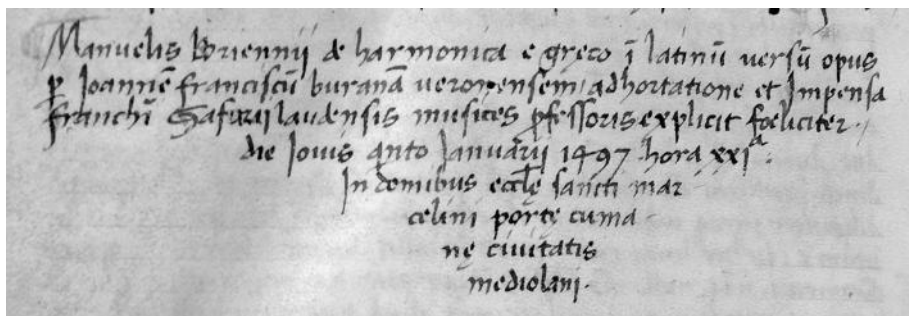 Manuelis Briennij de harmonica e greco ī latinū versū opus
ꝑ Joannē franciscū buranā veronensem, adhortatione et Impensa
franchī Gafurii laudensis musices ꝓfessoris explicit foeliciter.
die Iovis qnto Ianuarij 1497 hora xxiᵃ.
In domibus eccłę sancti mar
celini portę cuma
nę civitatis
mediolani.